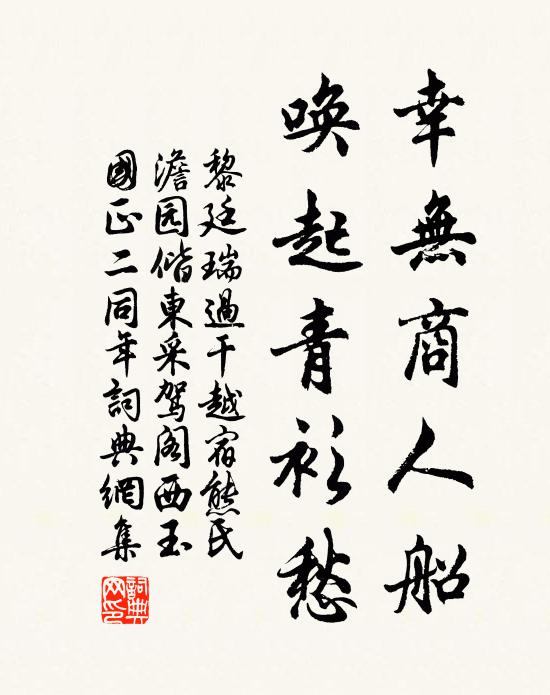 幸無商人船
喚起青衫愁
黎廷瑞過干越宿熊氏
澹园偕東采駕阁西玉
國正二同年詞典網集
詞典
网印